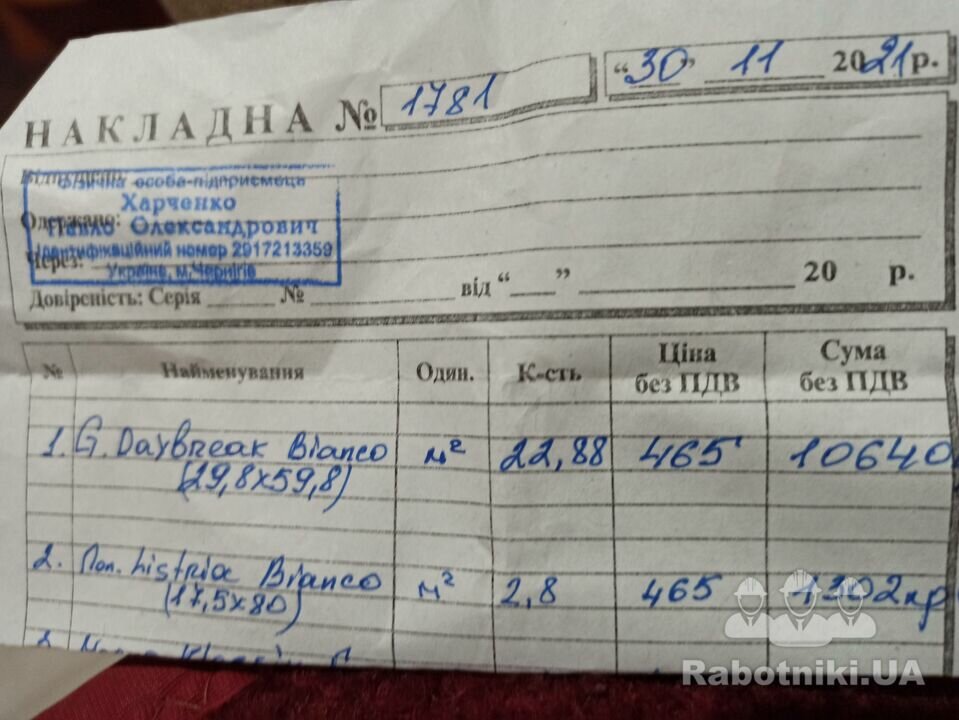 НАКЛАДНА № 1781 “30” 11 2021 р.
Фізична особа-підприємець
Харченко
Одержано: Павло Олександрович
Ідентифікаційний номер 2917213359
Через: Україна, м.Чернігів
Довірсність: Серія № від “ ” 20 р.
№ Найменування Один. К-сть Ціна без ПДВ Сума без ПДВ
1. G. Daybreak Bianco м² 22,88 465 10640
(29,8х59,8)
2. Пол. histria Bianco м² 2,8 465 1302
(17,5х80)
Rabotniki.UA